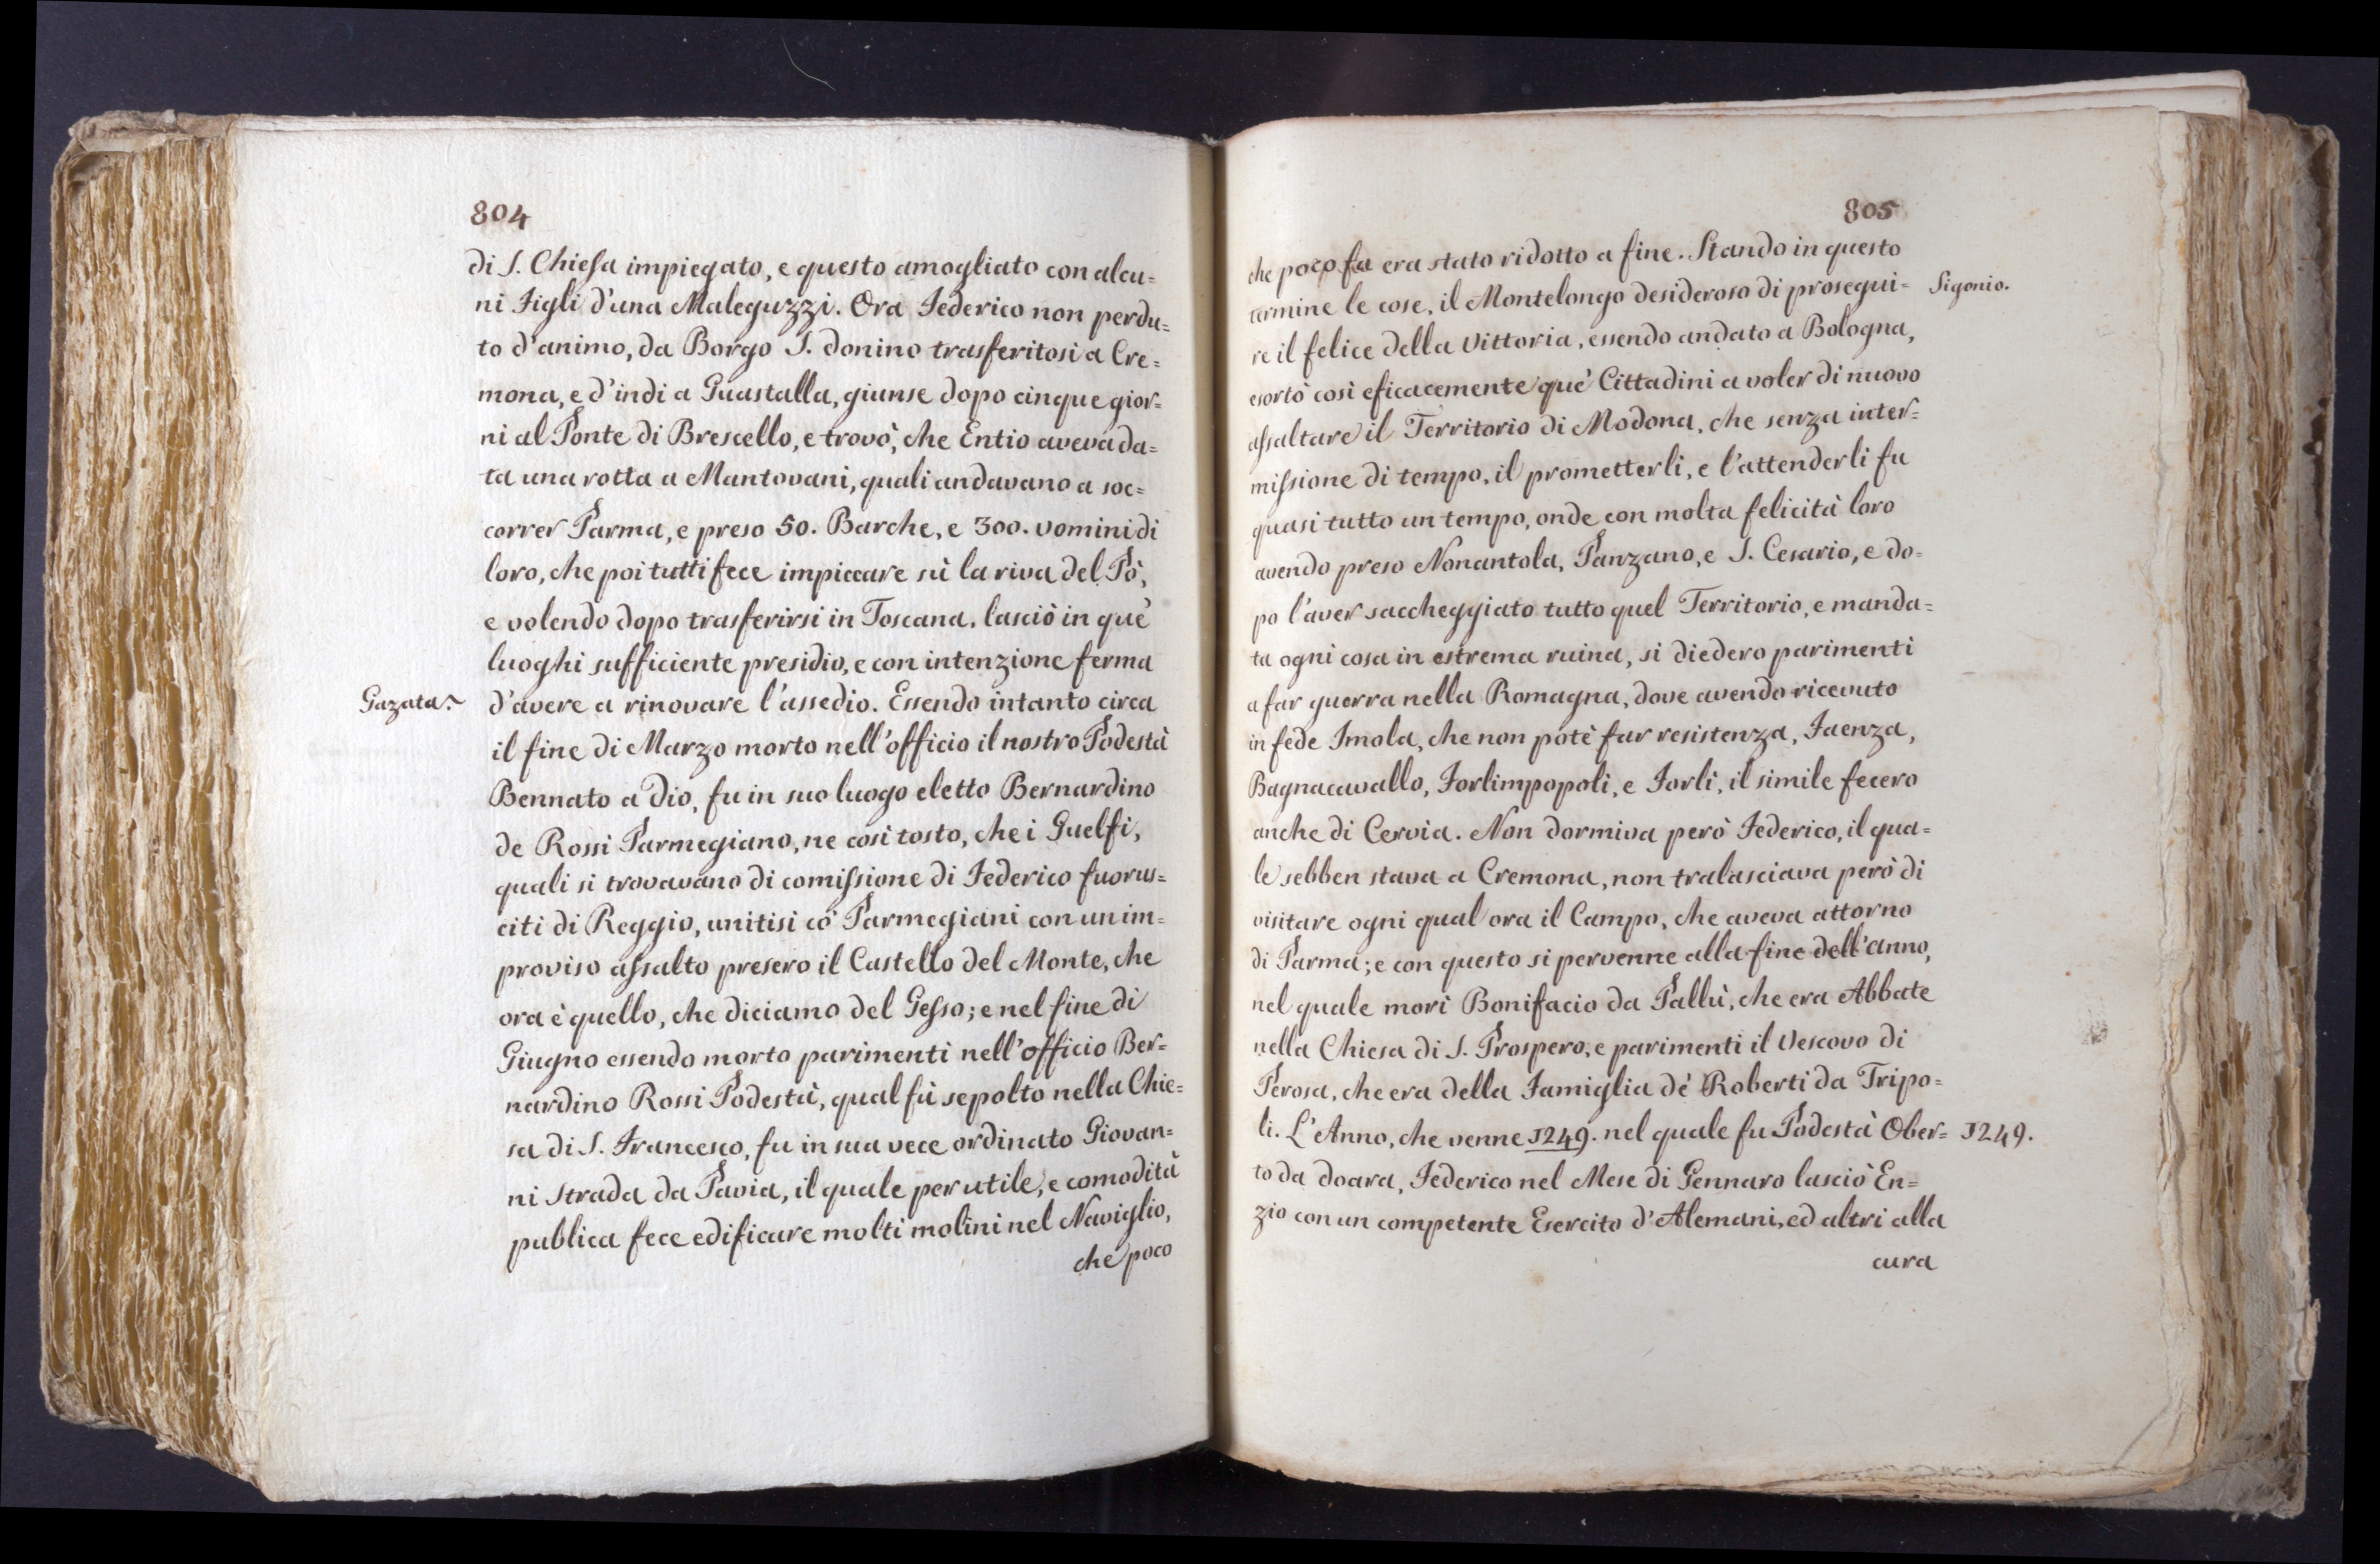 804
di S. Chiesa impiegato, e questo amogliato con alcu=
ni Figli d'una Maleguzzi. Ora Federico non perdu=
to d'animo, da Borgo S. donino trasferitosi a Cre=
mona, e d'indi a Guastalla, giunse dopo cinque gior=
ni al Ponte di Brescello, e trovò, che Entio aveva da=
ta una rotta a Mantovani, quali andavano a soc=
correr Parma, e preso 50. Barche, e 300. vomini di
loro, che poi tutti fece impiccare sù la riva del Pò,
e volendo dopo trasferirsi in Toscana, lasciò in què
luoghi sufficiente presidio, e con intenzione ferma
Gazata. d'avere a rinovare l'assedio. Essendo intanto circa
il fine di Marzo morto nell'officio il nostro Podestà
Bennato a dio, fu in suo luogo eletto Bernardino
de Rossi Parmegiano, ne così tosto, che i Guelfi,
quali si trovavano di comissione di Federico fuorus=
citi di Reggio, unitisi cò Parmegiani con un im=
proviso assalto presero il Castello del Monte, che
ora è quello, che diciamo del Gesso; e nel fine di
Giugno essendo morto parimenti nell'officio Ber=
nardino Rossi Podestà, qual fù sepolto nella Chie=
sa di S. Francesco, fu in sua vece ordinato Giovan=
ni Strada da Pavia, il quale per utile, e comodità
publica fece edificare molti molini nel Naviglio,
che poco
805
che poco fa era stato ridotto a fine. Stando in questo
termine le cose, il Montelongo desideroso di prosegui= Sigonio.
re il felice della vittoria, essendo andato a Bologna,
esortò così eficacemente què Cittadini a voler di nuovo
assaltare il Territorio di Modona, che senza inter=
missione di tempo, il prometterli, e l'attenderli fu
quasi tutto un tempo, onde con molta felicità loro
avendo preso Nonantola, Panzano, e S. Cesario, e do=
po l'aver saccheggiato tutto quel Territorio, e manda=
ta ogni cosa in estrema ruina, si diedero parimenti
a far guerra nella Romagna, dove avendo ricevuto
in fede Imola, che non potè far resistenza, Faenza,
Bagnacavallo, Forlimpopoli, e Forlì, il simile fecero
anche di Cervia. Non dormiva però Federico, il qua=
le sebben stava a Cremona, non tralasciava però di
visitare ogni qual ora il Campo, che aveva attorno
di Parma; e con questo si pervenne alla fine dell'anno,
nel quale morì Bonifacio da Pallù, che era Abbate
nella Chiesa di S. Prospero, e parimenti il Vescovo di
Perosa, che era della Famiglia dè Roberti da Tripo=
li. L'Anno, che venne 1249. nel quale fu Podestà Ober= 1249.
to da doara, Federico nel Mese di Gennaro lasciò En=
zio con un competente Esercito d'Alemani, ed altri alla
cura